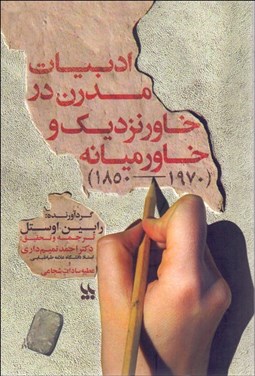 ادبیات
مدرن در
خاورنزدیک و
خاورمیانه
(۱۸۵۰ — ۱۹۷۰)
گردآورنده:
رابین اوستل
ترجمه و تحقیق:
دکتر احمد تمیم‌داری
استاد دانشگاه علامه طباطبایی
عطیه سادات شجاعی